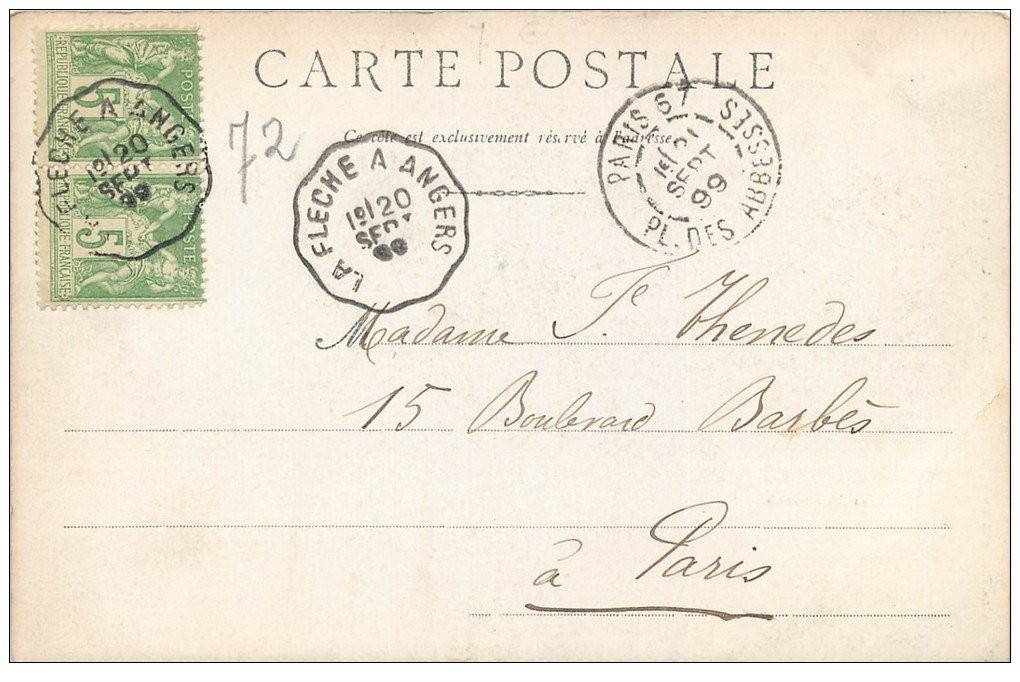 CARTE POSTALE
Ce côté est exclusivement réservé à l'adresse
72
POSTES
RÉPUBLIQUE FRANÇAISE
5
5
LA FLECHE A ANGERS
1º 20
SEPT
99
LA FLECHE A ANGERS
1º 20
SEPT
99
PARIS 67
21
SEPT
99
PL. DES ABBESSES
Madame Thenedes
15 Boulevard Barbès
à Paris